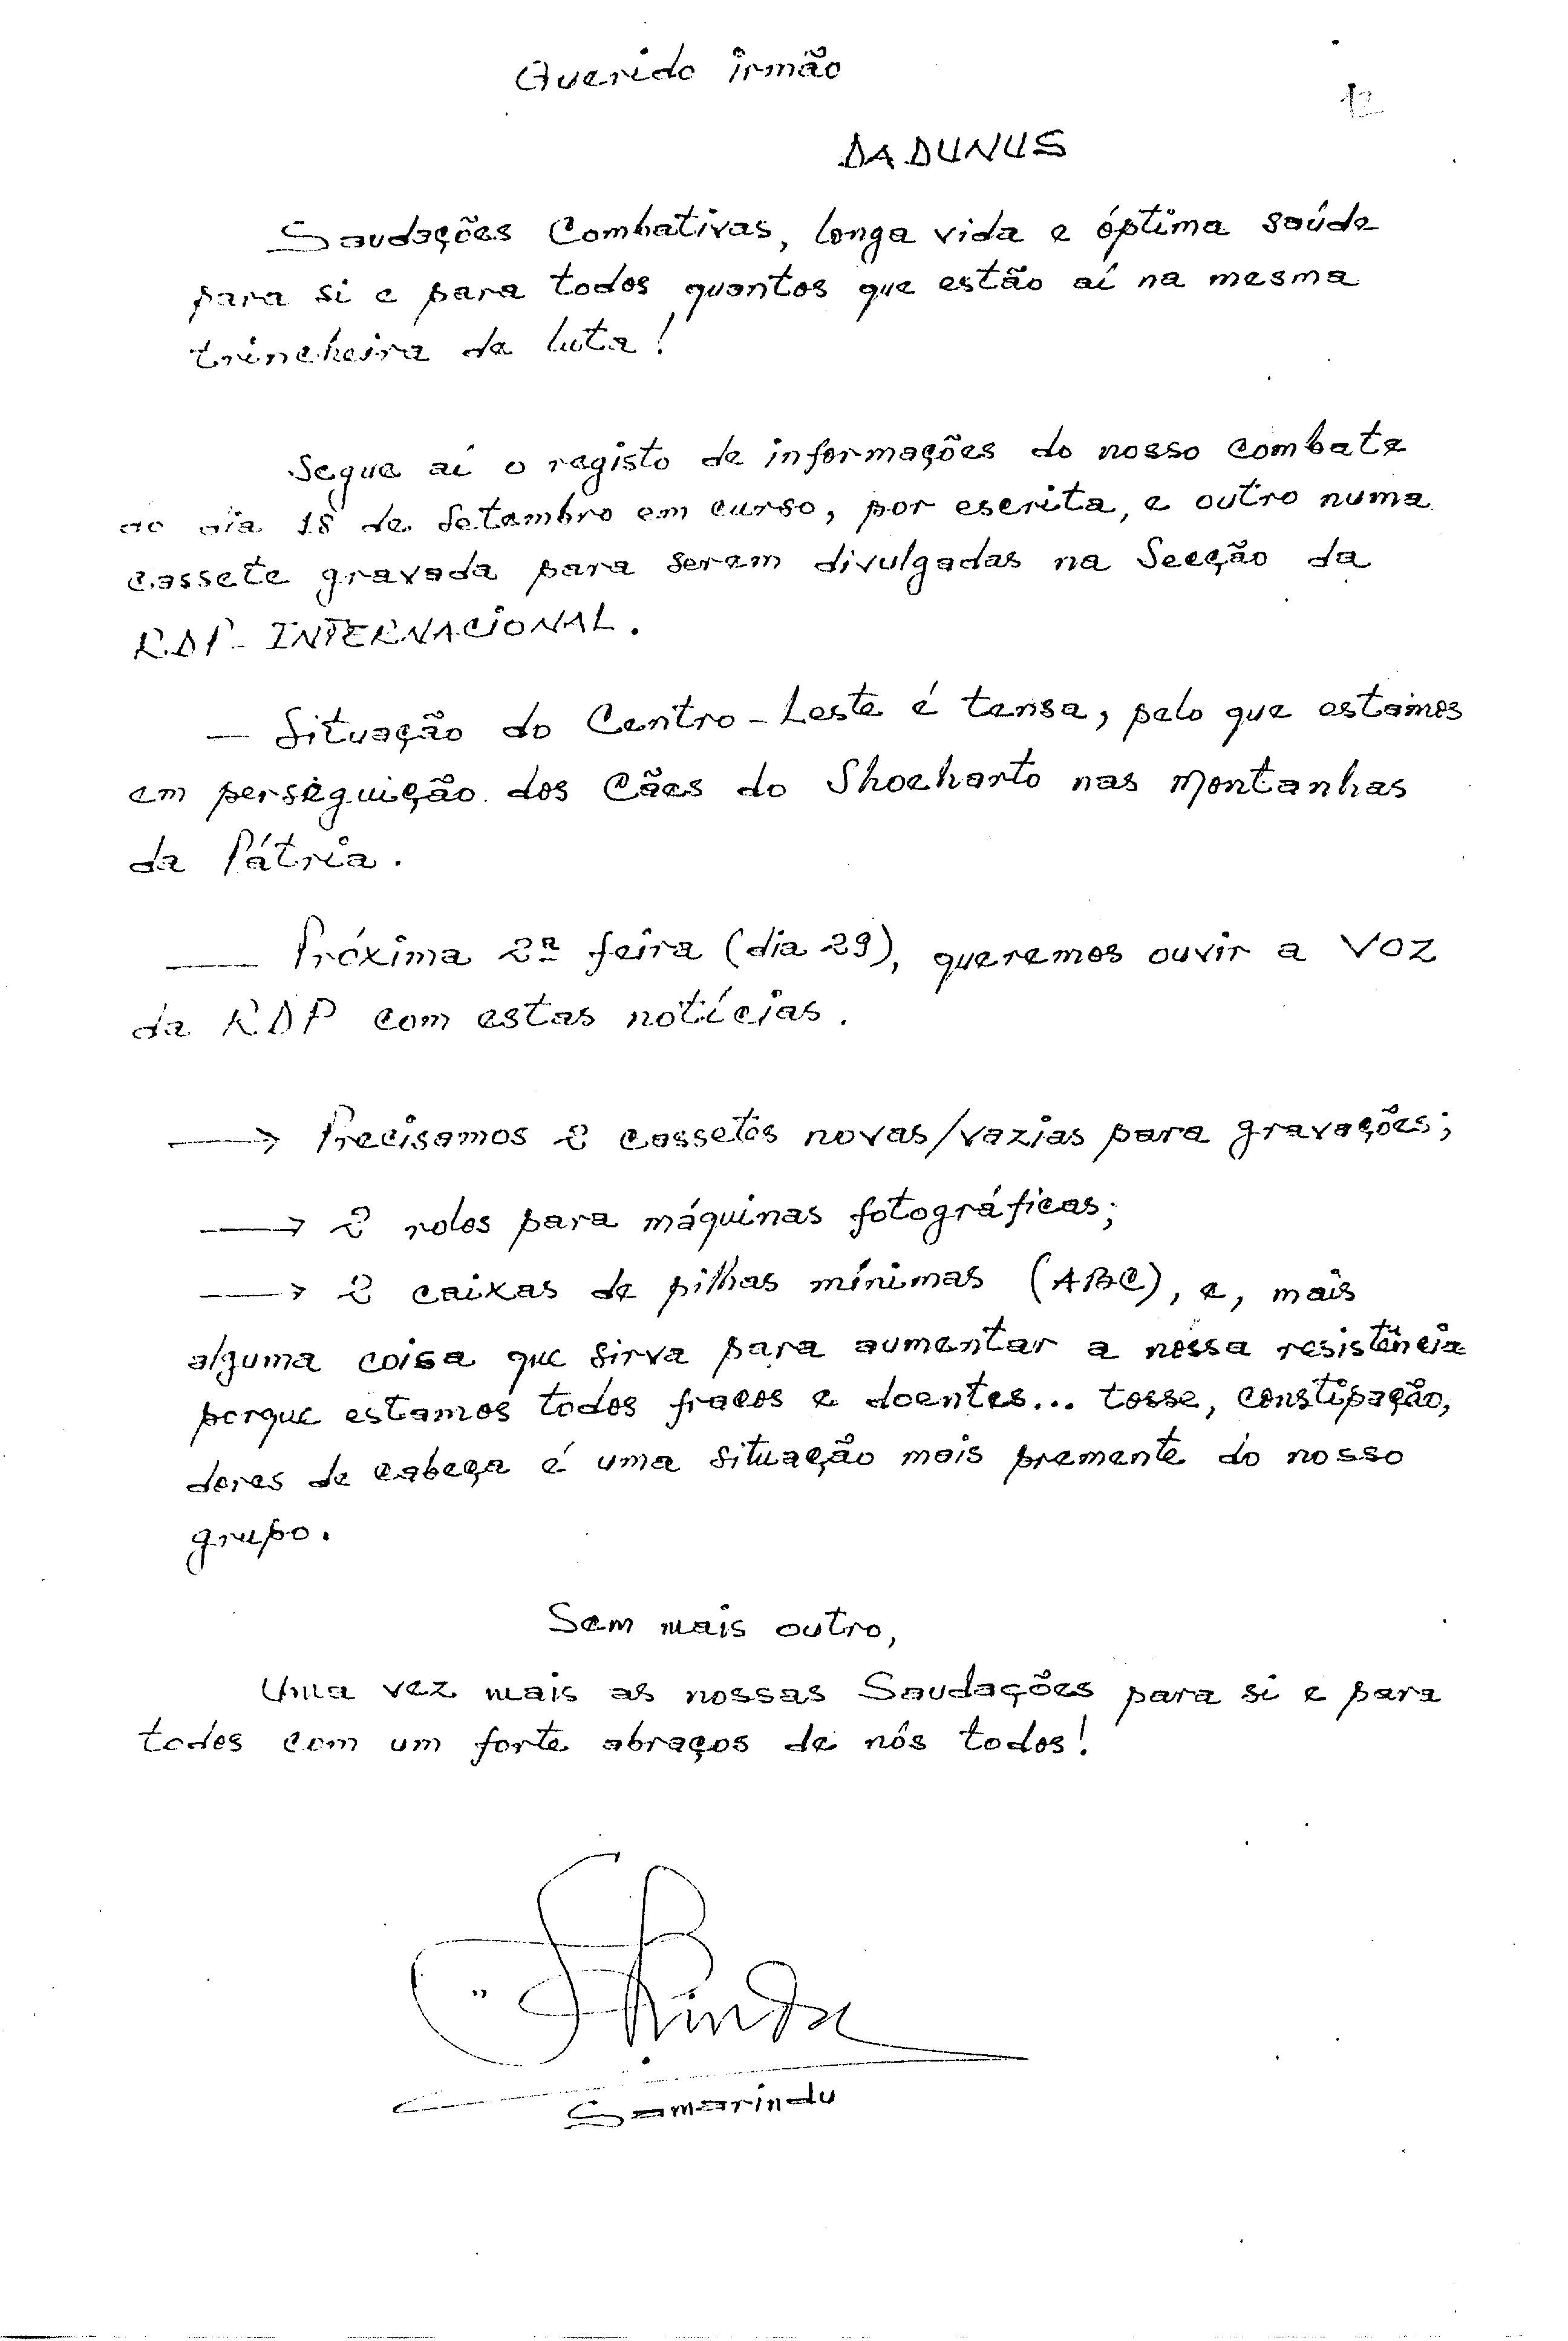 Querido irmão
12
DADUNUS
Saudações Combativas, longa vida e óptima saúde
para si e para todos quantos que estão aí na mesma
trincheira da luta!
Segue aí o registo de informações do nosso combate
ao dia 18 de Setembro em curso, por escrita, e outro numa
cassete gravada para serem divulgadas na Secção da
RDP-INTERNACIONAL.
— Situação do Centro-Leste é tensa, pelo que estamos
em perseguição dos Cães do Shoeharto nas Montanhas
da Pátria.
— Próxima 2ª feira (dia 29), queremos ouvir a VOZ
da RDP com estas notícias.
→ Precisamos 2 cassetes novas/vazias para gravações;
→ 2 rolos para máquinas fotográficas;
→ 2 caixas de pilhas mínimas (ABC), e, mais
alguma coisa que sirva para aumentar a nossa resistência
porque estamos todos fracos e doentes... tosse, constipação,
dores de cabeça é uma situação mais premente do nosso
grupo.
Sem mais outro,
Uma vez mais as nossas Saudações para si e para
todos com um forte abraços de nós todos!
Samarindu